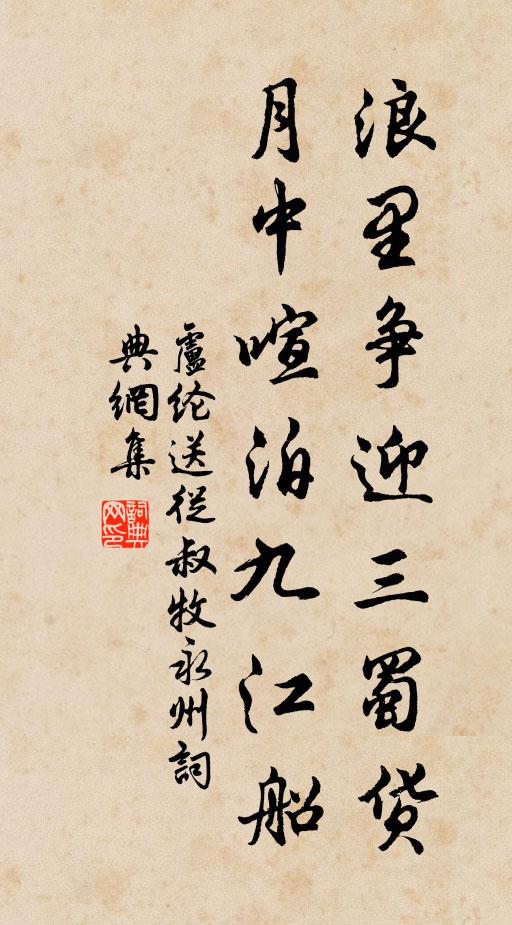 浪里争迎三蜀货
月中喧泊九江船
盧纶送從叔牧永州詞
典網集
詞典网印